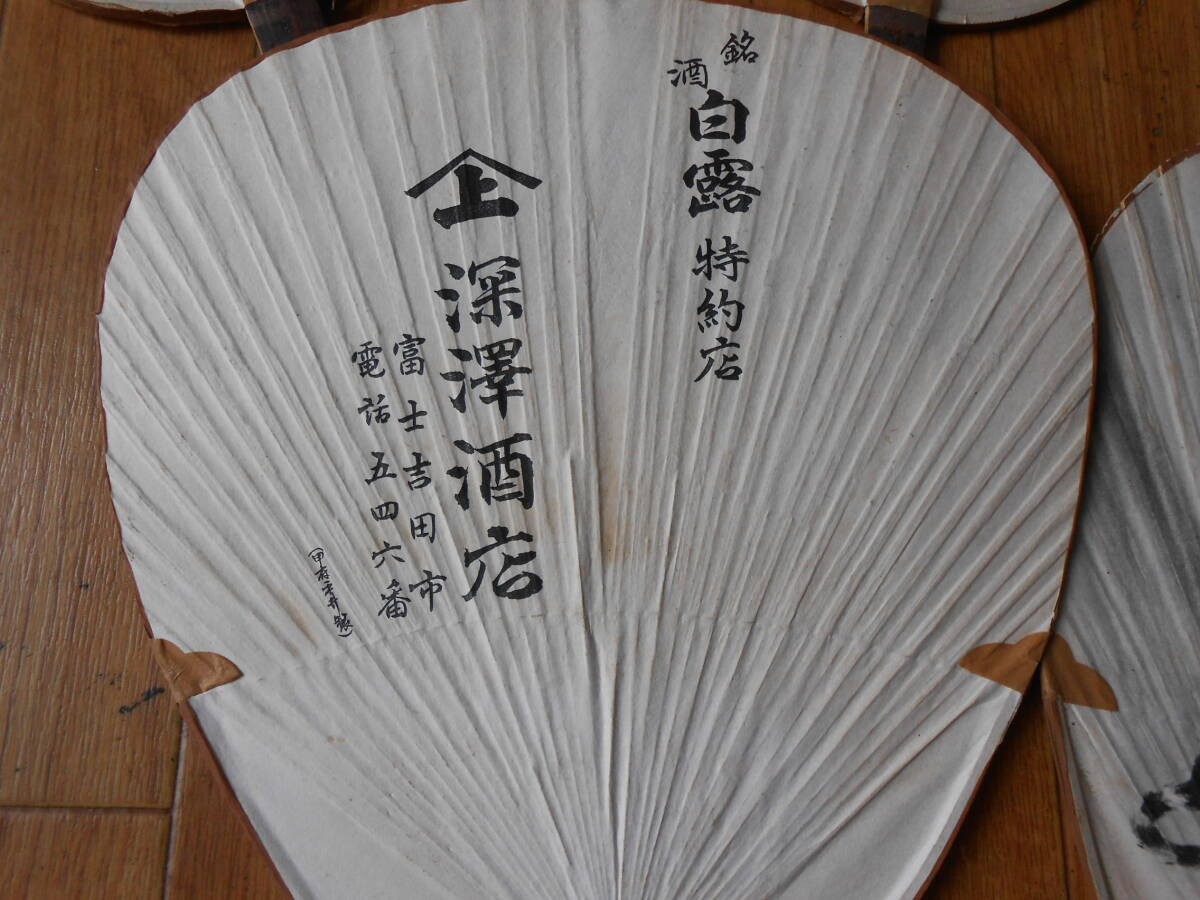 銘酒 白露 特約店
上 深澤酒店
富士吉田市
電話 五四六番
(甲府平井製)